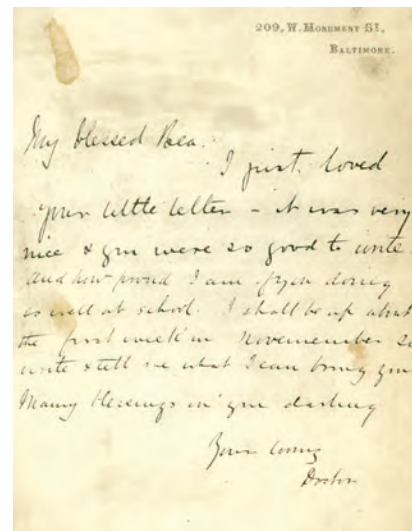 209, W. MONUMENT ST,
BALTIMORE.
My blessed Bea.
I just loved
your little letter - it was very
nice & you were so good to write
And how proud I am of you doing
so well at school. I shall be up about
the first week in Novemember So
write & tell me what I can bring you
Many blessings on you darling
Your loving
Doctor